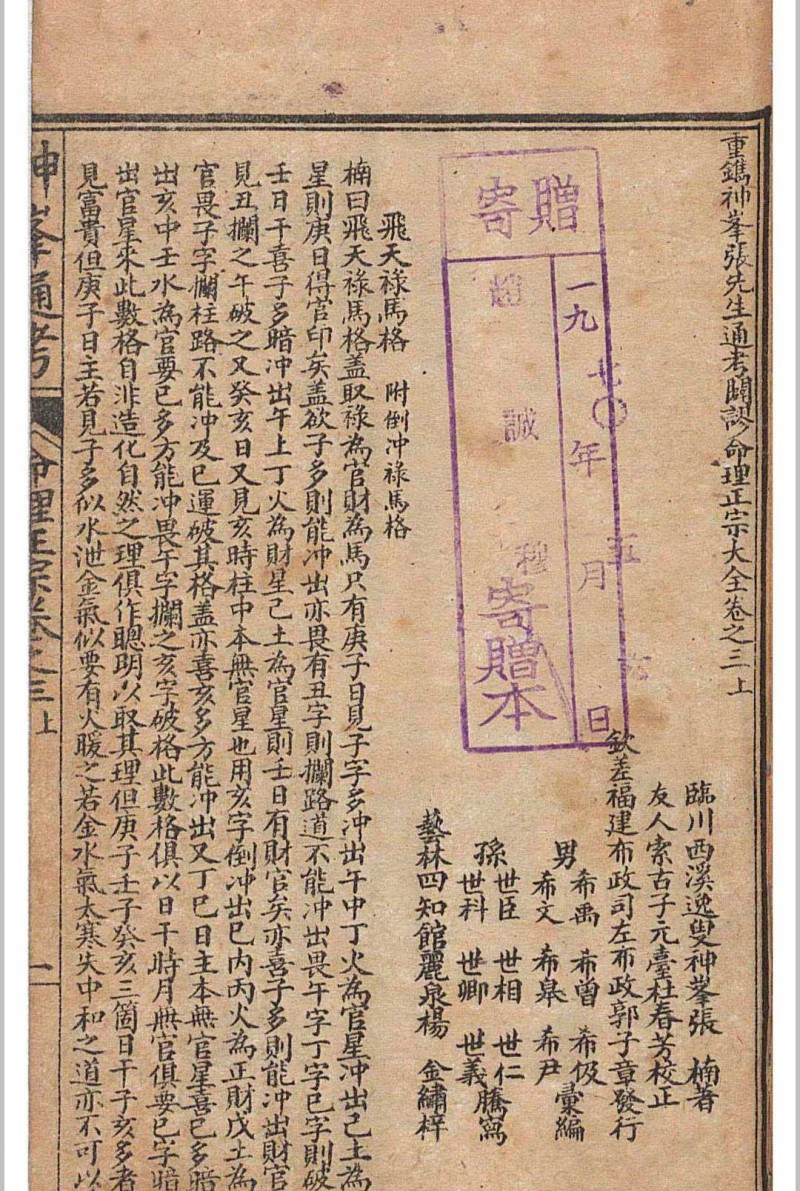 重鐫神峯張先生通考闢謬命理正宗大全卷之三上
臨川西溪逸叟神峯張　楠著
友人索古子元臺杜春芳校正
欽差福建布政司左布政郭子章發行
男　希禹　希曽　希伋
希文　希皋　希尹　彙編
孫　世臣　世相　世仁
世科　世卿　世義　騰寫
藝林四知館麗泉楊　金繡梓
飛天祿馬格　附倒冲祿馬格
楠曰飛天祿馬格盖取祿為官財為馬只有庚子日見子字多冲出午中丁火為官星冲出己土為
星則庚日得官印矣盖欲子多則能冲出亦畏有丑字則攔路道不能冲出畏午字丁字巳字則破
壬日干喜子多暗冲出午上丁火為財星己土為官星則壬日有財官矣亦喜子多則能冲出財官
見丑攔之午破之又癸亥日又見亥時柱中本無官星也用亥字倒冲出巳内丙火為正財戊土為
官畏子字攔柱路不能冲及巳運破其格盖亦喜亥多方能冲出又丁巳日主本無官星喜巳多暗
出亥中壬水為官要巳多方能冲畏午字攔之亥字破格此數格俱以日干時月無官俱要巳字暗
出官星來此數格自非造化自然之理俱作聰明以取其理但庚子壬子癸亥三箇日干子亥多者
見富貴但庚子日主若見子多似水泄金氣似要有火暖之若金水氣太寒失中和之道亦不可以
神峯通考
命理正宗卷之三上
一
寄贈
一九七〇年五月六日
趙誠
寄贈本